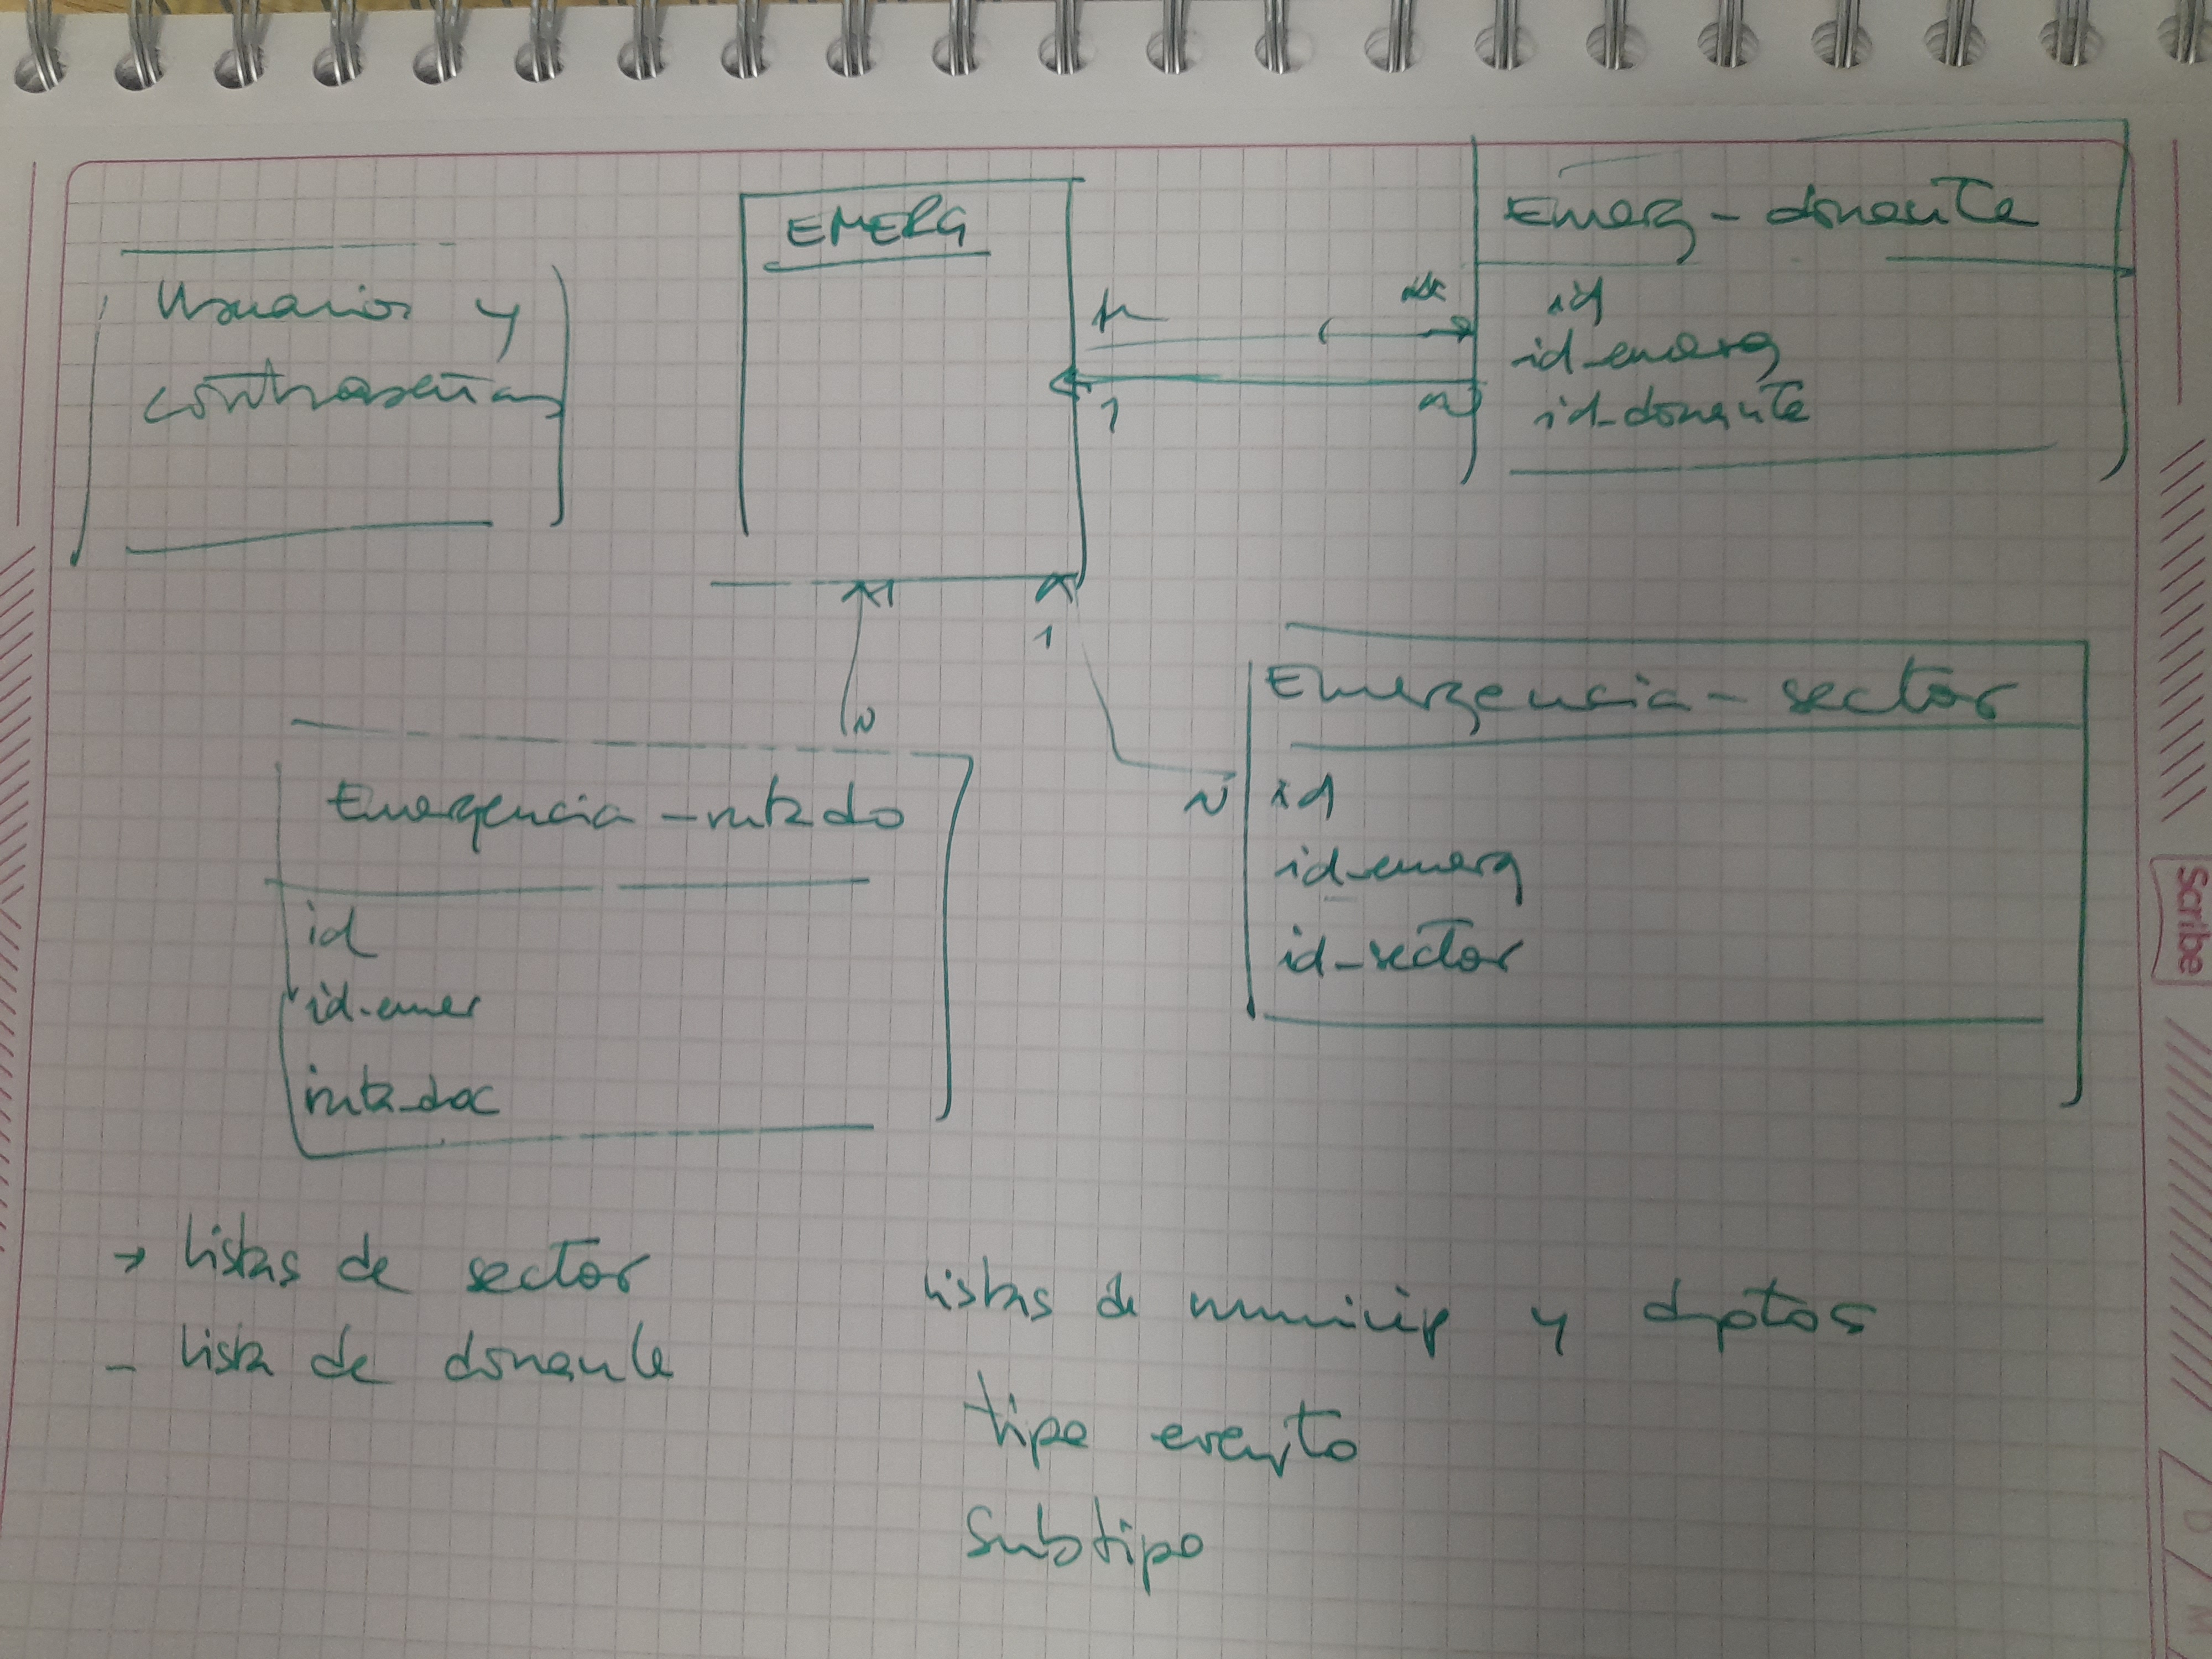 Usuario y
contraseña
EMERG
1
n
1
n
Emerg - donante
id
id_emerg
id_donante
1
N
Emergencia - rutado
id
id_emer
ruta_doc
N
Emergencia - sector
id
id_emerg
id_sector
→ listas de sector
- lista de donante
listas de municip y dptos
tipo evento
subtipo
Scribe
D M